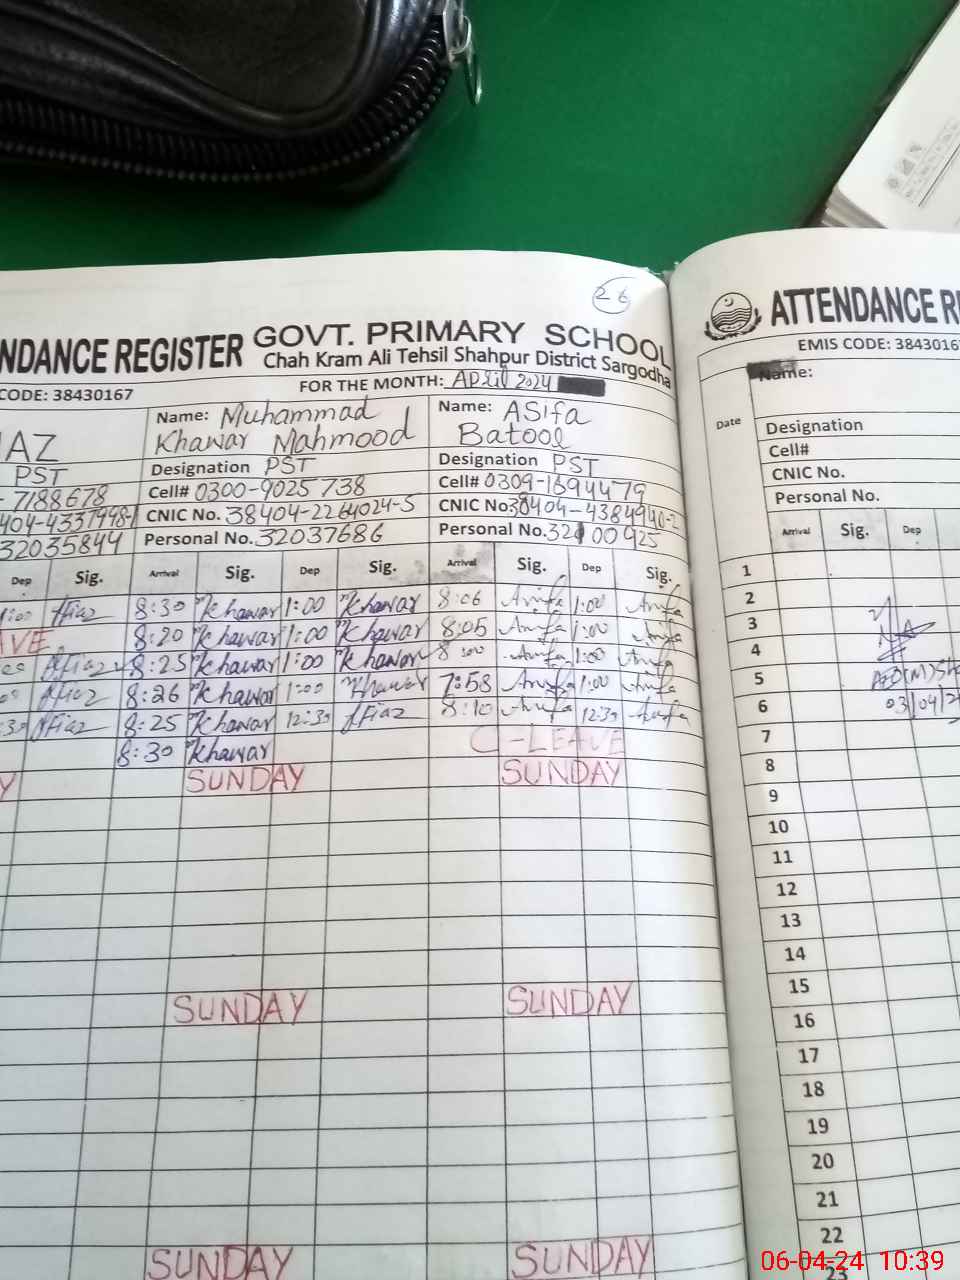 26
NDANCE REGISTER GOVT. PRIMARY SCHOOL
Chah Kram Ali Tehsil Shahpur District Sargodha
CODE: 38430167 FOR THE MONTH: APril 2024
IAZ Name: Muhammad Khawar Mahmood Name: ASifa Batool
PST Designation PST Designation PST
- 7188678 Cell# 0300-9025738 Cell# 0309-1694479
404-4331448-1 CNIC No. 38404-2264024-5 CNIC No. 38404-4384940-2
32035844 Personal No. 32037686 Personal No. 32100925
Dep Sig. Arrival Sig. Dep Sig. Arrival Sig. Dep Sig.
1:00 ffiaz 8:30 Khawar 1:00 Khawar 8:06 1:00
AVE 8:20 Khawar 1:00 Khawar 8:05 1:00
ffiaz 8:25 Khawar 1:00 Khawar 8:00 1:00
ffiaz 8:26 Khawar 1:00 Khawar 7:58 1:00
:30 ffiaz 8:25 Khawar 12:30 ffiaz 8:10 12:30
8:30 Khawar C-LEAVE
Y SUNDAY SUNDAY
SUNDAY SUNDAY
SUNDAY SUNDAY
ATTENDANCE RE
EMIS CODE: 3843016
Name:
Date
Designation
Cell#
CNIC No.
Personal No.
Arrival Sig. Dep
1
2
3
4
5
6 03/04/2
7
8
9
10
11
12
13
14
15
16
17
18
19
20
21
22
23
06-04-24 10:39